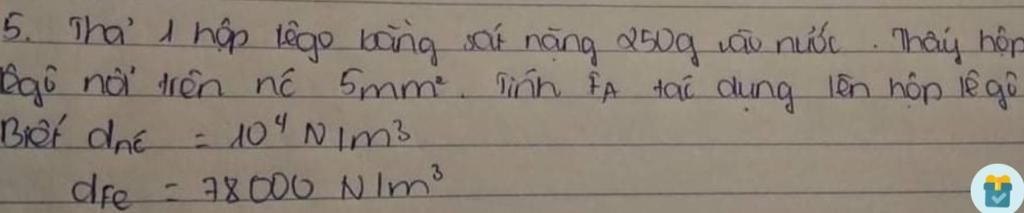 5. Thả 1 hộp lêgo bằng sắt nặng 250g vào nước. Thấy hộp
lêgô nổi trên nc 5mm². Tính FA tác dụng lên hộp lêgô
Biết dnc = 10⁴ N/m³
dFe = 78000 N/m³